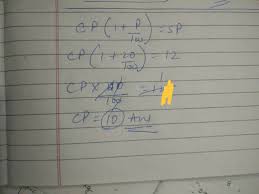 CP(1+P/100)=SP
CP(1+20/100)=12
CP×
/100
CP=10 Ans